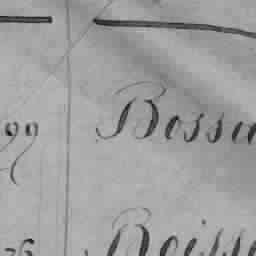 99 Bossu
76 Boiss